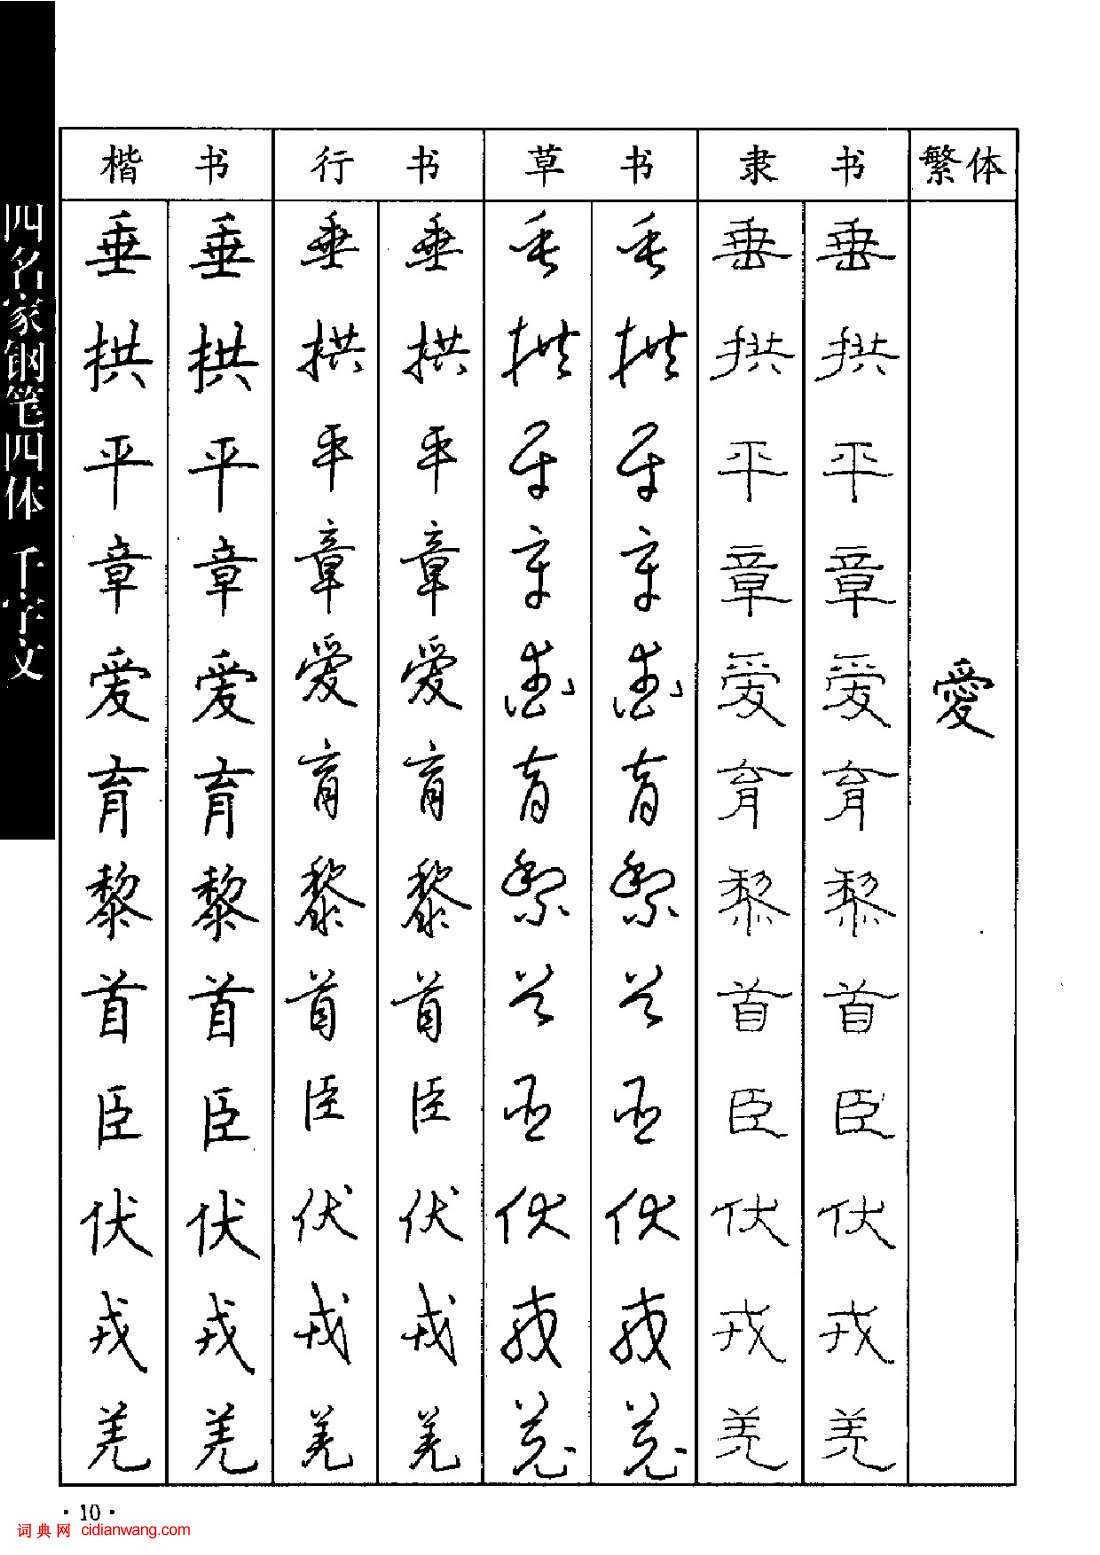 四名家钢笔四体 千字文
楷 书 行 书 草 书 隶 书 繁体
垂 垂 垂 垂 垂 垂 垂 垂
拱 拱 拱 拱 拱 拱 拱 拱
平 平 平 平 平 平 平 平
章 章 章 章 章 章 章 章
爱 爱 爱 爱 爱 爱 爱 爱 愛
育 育 育 育 育 育 育 育
黎 黎 黎 黎 黎 黎 黎 黎
首 首 首 首 首 首 首 首
臣 臣 臣 臣 臣 臣 臣 臣
伏 伏 伏 伏 伏 伏 伏 伏
戎 戎 戎 戎 戎 戎 戎 戎
羌 羌 羌 羌 羌 羌 羌 羌
·10·
词典网 cidianwang.com